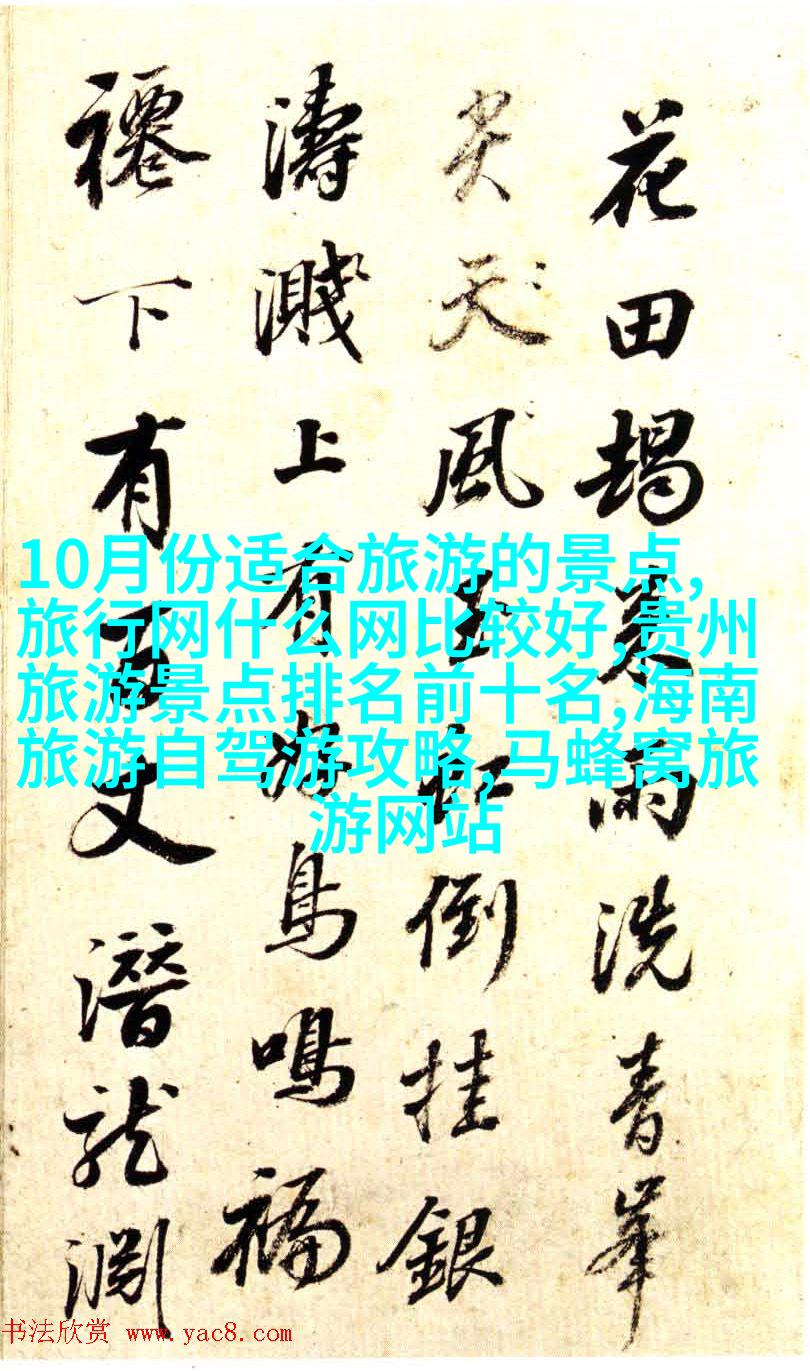 花田雨洗青峯
尖天風玉虹倒挂銀
濤濺上有海鳥鳴福
下有百丈潛龍淵
10月份适合旅游的景点,
旅行网什么网比较好,贵州
旅游景点排名前十名,海南
旅游自驾游攻略,马蜂窝旅
游网站
书法欣赏 www.yac8.com